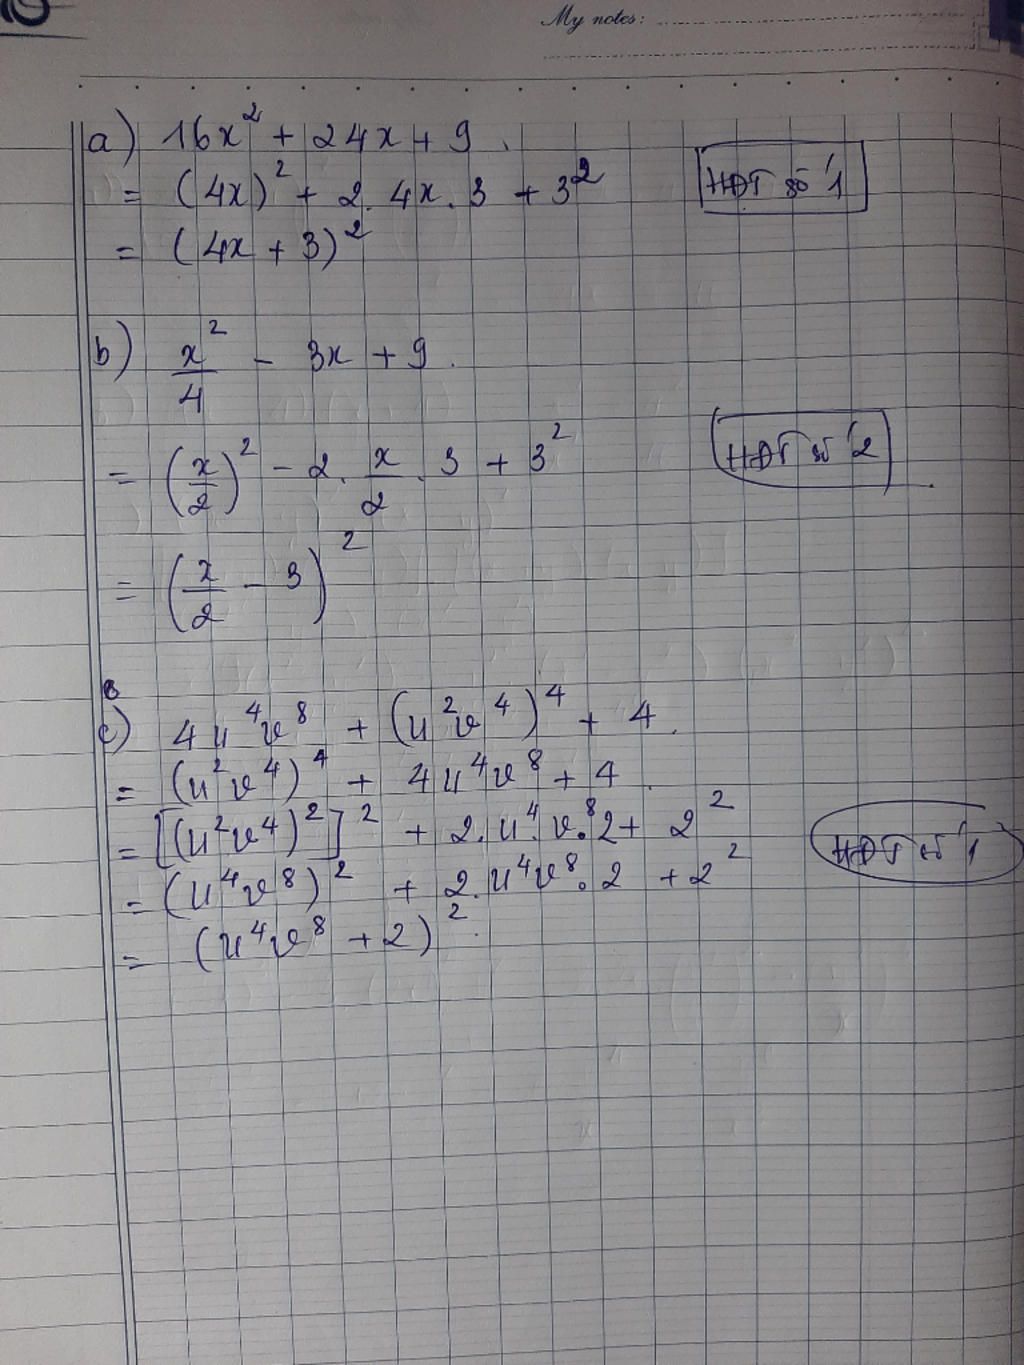 My notes:
a) 16x² + 24x + 9.
= (4x)² + 2. 4x. 3 + 3²
HĐT số 1
= (4x + 3)²
b) x²/4 - 3x + 9.
= (x/2)² - 2. x/2 . 3 + 3²
HĐT số 2
= (x/2 - 3)²
c) 4u⁴v⁸ + (u²v⁴)⁴ + 4.
= (u²v⁴)⁴ + 4u⁴v⁸ + 4
= [(u²v⁴)²]² + 2. u⁴. v⁸. 2 + 2²
HĐT số 1
= (u⁴v⁸)² + 2. u⁴v⁸. 2 + 2²
= (u⁴v⁸ + 2)².